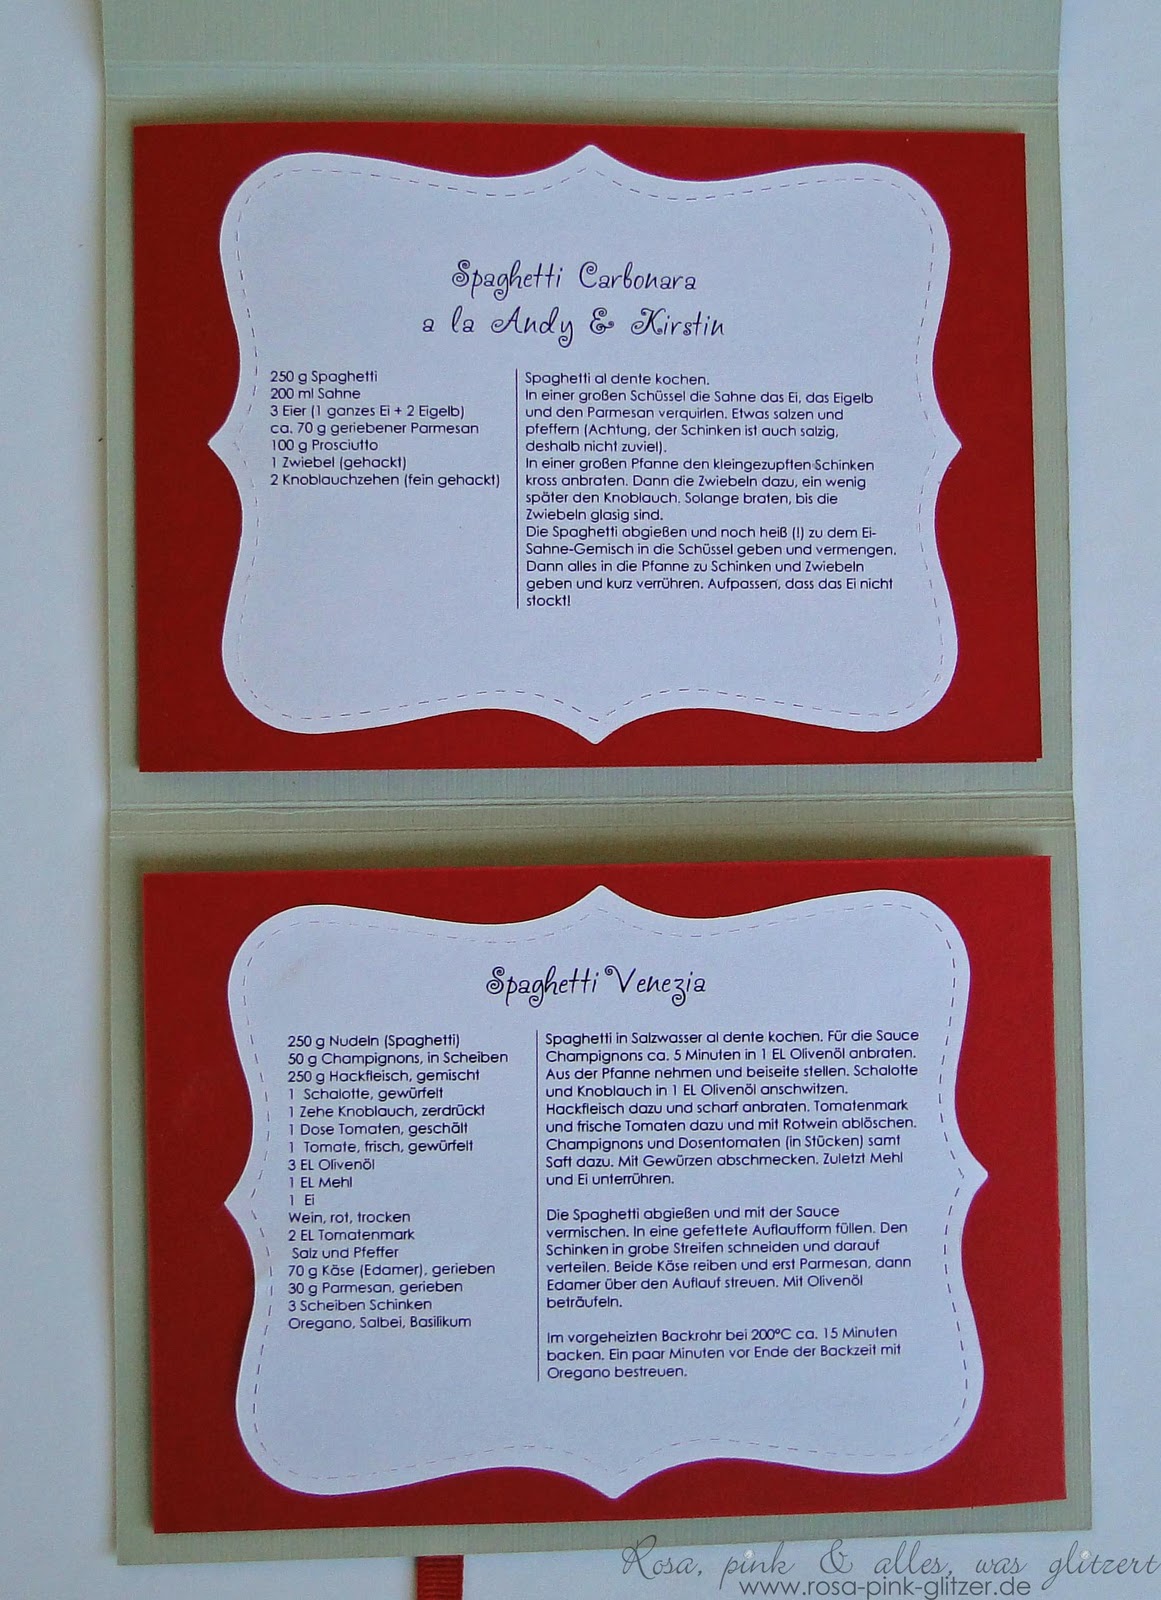 Spaghetti Carbonara
a la Andy & Kirstin
250 g Spaghetti
200 ml Sahne
3 Eier (1 ganzes Ei + 2 Eigelb)
ca. 70 g geriebener Parmesan
100 g Prosciutto
1 Zwiebel (gehackt)
2 Knoblauchzehen (fein gehackt)
Spaghetti al dente kochen.
In einer großen Schüssel die Sahne das Ei, das Eigelb
und den Parmesan verquirlen. Etwas salzen und
pfeffern (Achtung, der Schinken ist auch salzig,
deshalb nicht zuviel).
In einer großen Pfanne den kleingezupften Schinken
kross anbraten. Dann die Zwiebeln dazu, ein wenig
später den Knoblauch. Solange braten, bis die
Zwiebeln glasig sind.
Die Spaghetti abgießen und noch heiß (!) zu dem Ei-
Sahne-Gemisch in die Schüssel geben und vermengen.
Dann alles in die Pfanne zu Schinken und Zwiebeln
geben und kurz verrühren. Aufpassen, dass das Ei nicht
stockt!
Spaghetti Venezia
250 g Nudeln (Spaghetti)
50 g Champignons, in Scheiben
250 g Hackfleisch, gemischt
1 Schalotte, gewürfelt
1 Zehe Knoblauch, zerdrückt
1 Dose Tomaten, geschält
1 Tomate, frisch, gewürfelt
3 EL Olivenöl
1 EL Mehl
1 Ei
Wein, rot, trocken
2 EL Tomatenmark
Salz und Pfeffer
70 g Käse (Edamer), gerieben
30 g Parmesan, gerieben
3 Scheiben Schinken
Oregano, Salbei, Basilikum
Spaghetti in Salzwasser al dente kochen. Für die Sauce
Champignons ca. 5 Minuten in 1 EL Olivenöl anbraten.
Aus der Pfanne nehmen und beiseite stellen. Schalotte
und Knoblauch in 1 EL Olivenöl anschwitzen.
Hackfleisch dazu und scharf anbraten. Tomatenmark
und frische Tomaten dazu und mit Rotwein ablöschen.
Champignons und Dosentomaten (in Stücken) samt
Saft dazu. Mit Gewürzen abschmecken. Zuletzt Mehl
und Ei unterrühren.
Die Spaghetti abgießen und mit der Sauce
vermischen. In eine gefettete Auflaufform füllen. Den
Schinken in grobe Streifen schneiden und darauf
verteilen. Beide Käse reiben und erst Parmesan, dann
Edamer über den Auflauf streuen. Mit Olivenöl
beträufeln.
Im vorgeheizten Backrohr bei 200°C ca. 15 Minuten
backen. Ein paar Minuten vor Ende der Backzeit mit
Oregano bestreuen.
Rosa, pink & alles, was glitzert
www.rosa-pink-glitzer.de